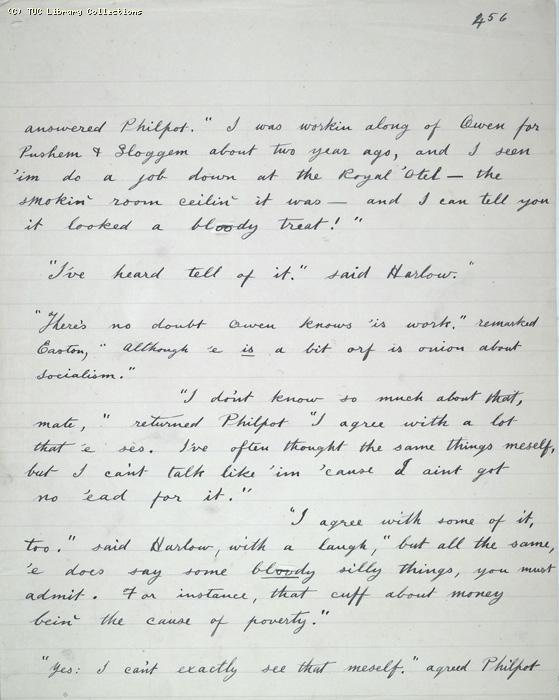 (C) TUC Library Collections
456
answered Philpot." I was workin along of Owen for
Pushem & Sloggem about two year ago, and I seen
'im do a job down at the Royal 'Otel — the
smokin' room ceilin' it was — and I can tell you
it looked a bloody treat!"
"I've heard tell of it." said Harlow."
"There's no doubt Owen knows 'is work." remarked
Easton, "Although 'e is a bit orf is onion about
socialism."
"I don't know so much about that,
mate," returned Philpot "I agree with a lot
that 'e ses. I've often thought the same things meself,
but I can't talk like 'im 'cause I aint got
no 'ead for it."
"I agree with some of it,
too." said Harlow, with a laugh, "but all the same,
'e does say some bloody silly things, you must
admit. For instance, that cuff about money
bein' the cause of poverty."
"Yes: I can't exactly see that meself." agreed Philpot